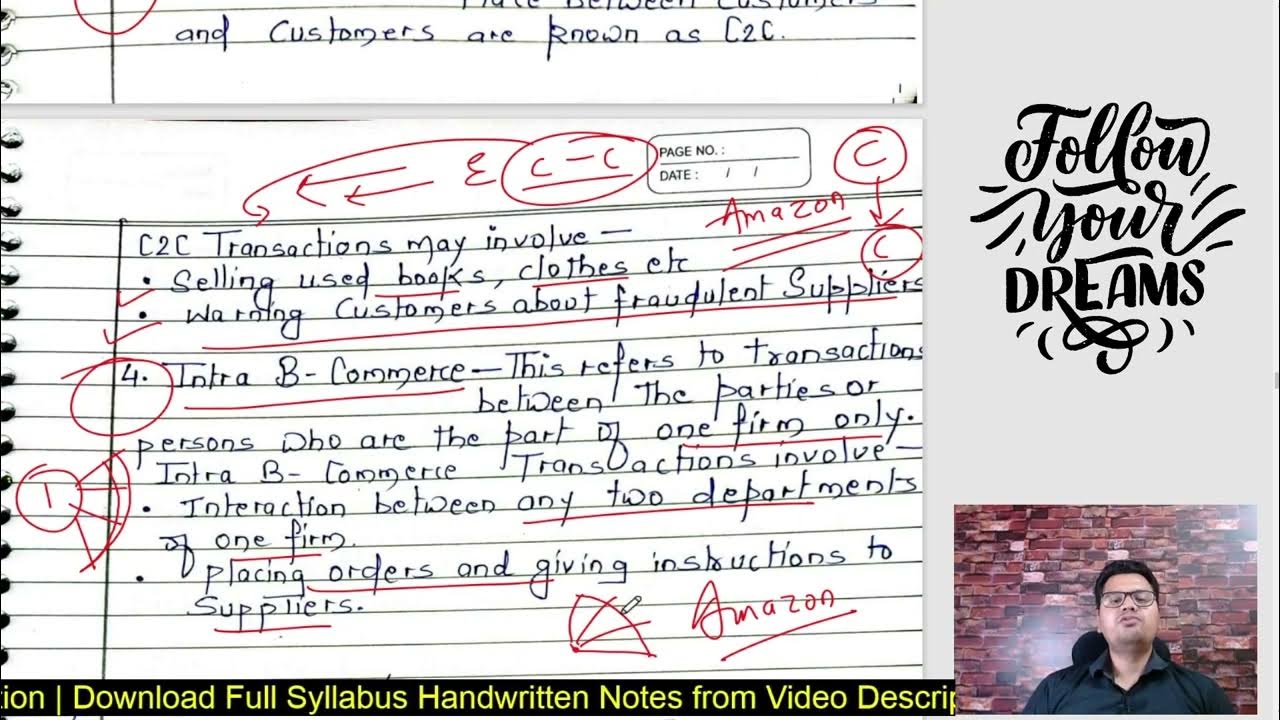 Place Between Customers
and Customers are known as C2C.
C - C
PAGE NO. :
DATE : / /
C
Amazon
C
C2C Transactions may involve —
• Selling used books, clothes etc
• Warning Customers about fraudulent Suppliers
4. Intra B- Commerce — This refers to transactions
between the parties or
persons who are the part of one firm only.
Intra B- Commerce Transactions involve —
• Interaction between any two departments
of one firm.
• placing orders and giving instructions to
Suppliers.
Amazon
1
Follow
Your
DREAMS
tion | Download Full Syllabus Handwritten Notes from Video Descrip